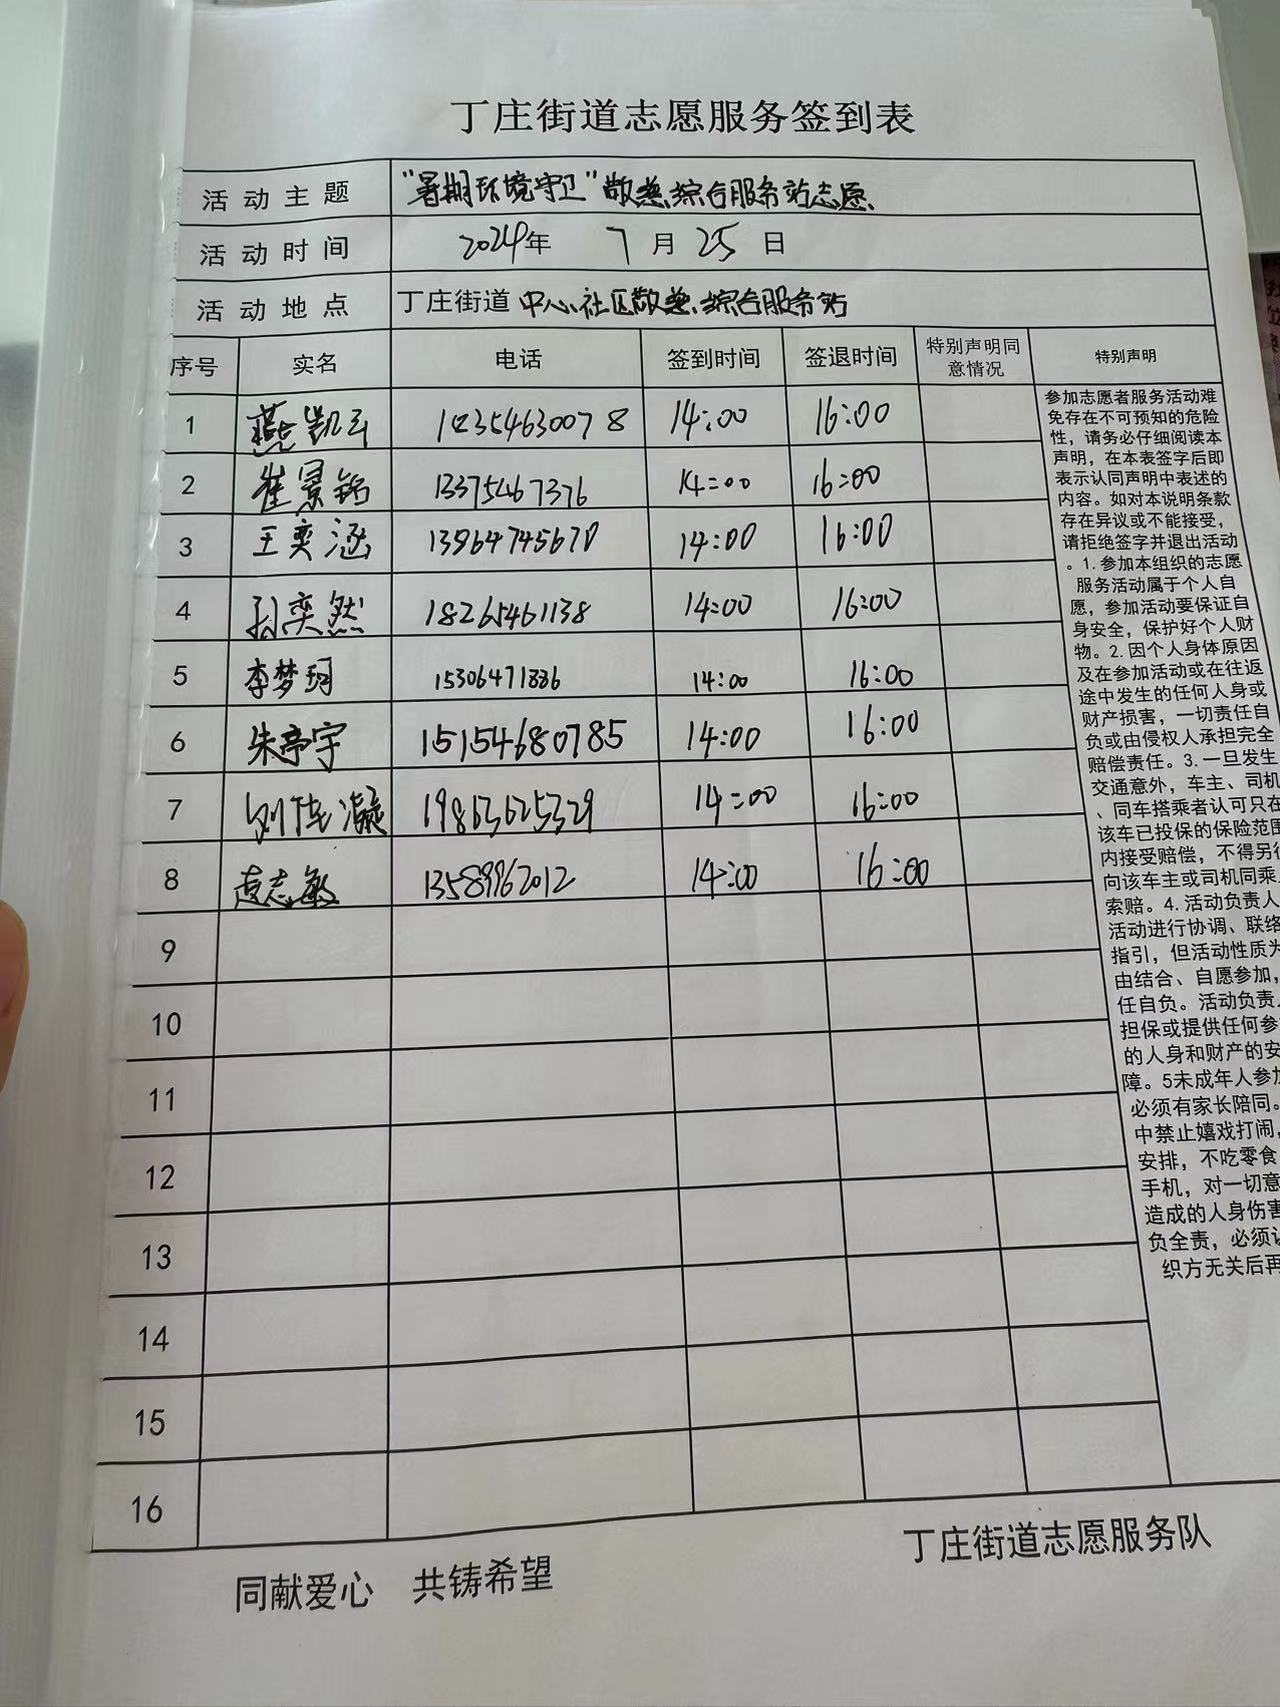 丁庄街道志愿服务签到表
活动主题 "暑期环境守卫"敬慈综合服务站志愿
活动时间 2024年 7月25日
活动地点 丁庄街道中心社区敬慈综合服务站
序号 实名 电话 签到时间 签退时间 特别声明同意情况 特别声明
1 燕凯云 14:00 16:00
2 崔景铭 13375467376 14:00 16:00
3 王奕涵 14:00 16:00
4 孙奕然 18265461138 14:00 16:00
5 李梦珂 15306471886 14:00 16:00
6 朱亭宇 15154680785 14:00 16:00
7 19863625329 14:00 16:00
8 志敏 13589962012 14:00 16:00
9
10
11
12
13
14
15
16
参加志愿者服务活动难
免存在不可预知的危险
性，请务必仔细阅读本
声明，在本表签字后即
表示认同声明中表述的
内容。如对本说明条款
存在异议或不能接受，
请拒绝签字并退出活动
。1.参加本组织的志愿
服务活动属于个人自
愿，参加活动要保证自
身安全，保护好个人财
物。2.因个人身体原因
及在参加活动或在往返
途中发生的任何人身或
财产损害，一切责任自
负或由侵权人承担完全
赔偿责任。3.一旦发生
交通意外，车主、司机
、同车搭乘者认可只在
该车已投保的保险范围
内接受赔偿，不得另行
向该车主或司机同乘人
索赔。4.活动负责人
活动进行协调、联络
指引，但活动性质为
由结合、自愿参加，
任自负。活动负责人
担保或提供任何参
的人身和财产的安
障。5未成年人参加
必须有家长陪同。
中禁止嬉戏打闹，
安排，不吃零食
手机，对一切意
造成的人身伤害
负全责，必须认
织方无关后再
同献爱心 共铸希望
丁庄街道志愿服务队